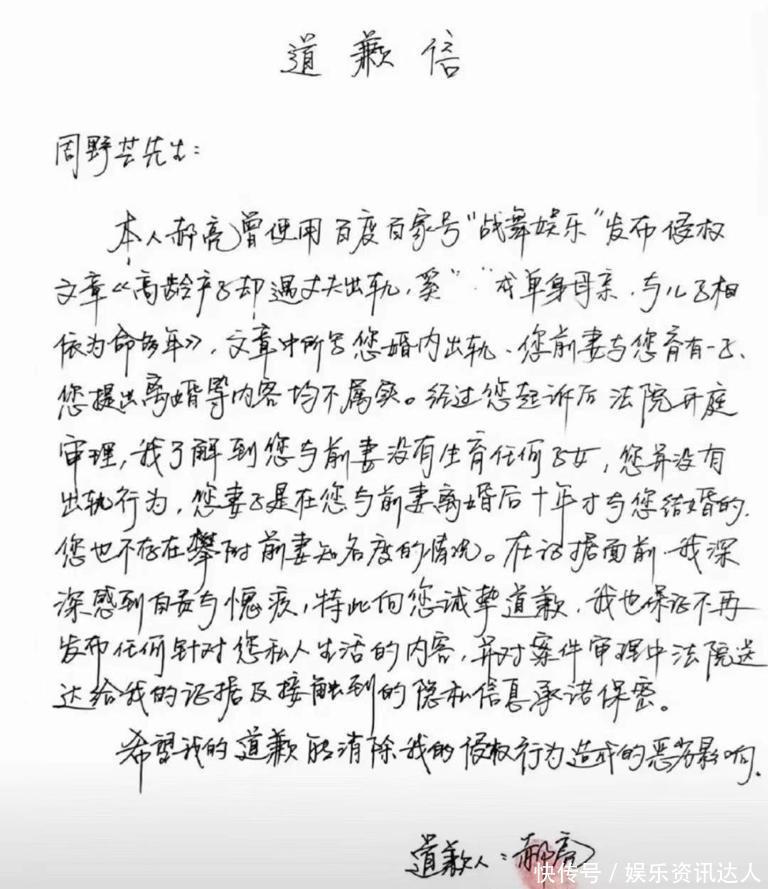 道歉信
周野芒先生:
本人郝亮曾使用百度百家号"战舞娱乐"发布侵权
文章《高龄产子却遇丈夫出轨,奚" "成单身母亲,与儿子相
依为命多年》,文章中所写您婚内出轨、您前妻与您育有一子、
您提出离婚等内容均不属实。经过您起诉后法院开庭
审理,我了解到您与前妻没有生育任何子女,您并没有
出轨行为,您妻子是在您与前妻离婚后十年才与您结婚的,
您也不存在攀附前妻知名度的情况。在证据面前我深
深感到自责与愧疚,特此向您诚挚道歉,我也保证不再
发布任何针对您私人生活的内容,并对案件审理中法院送
达给我的证据及接触到的隐私信息承诺保密。
希望我的道歉能消除我的侵权行为造成的恶劣影响。
道歉人:郝亮
快传号/娱乐资讯达人